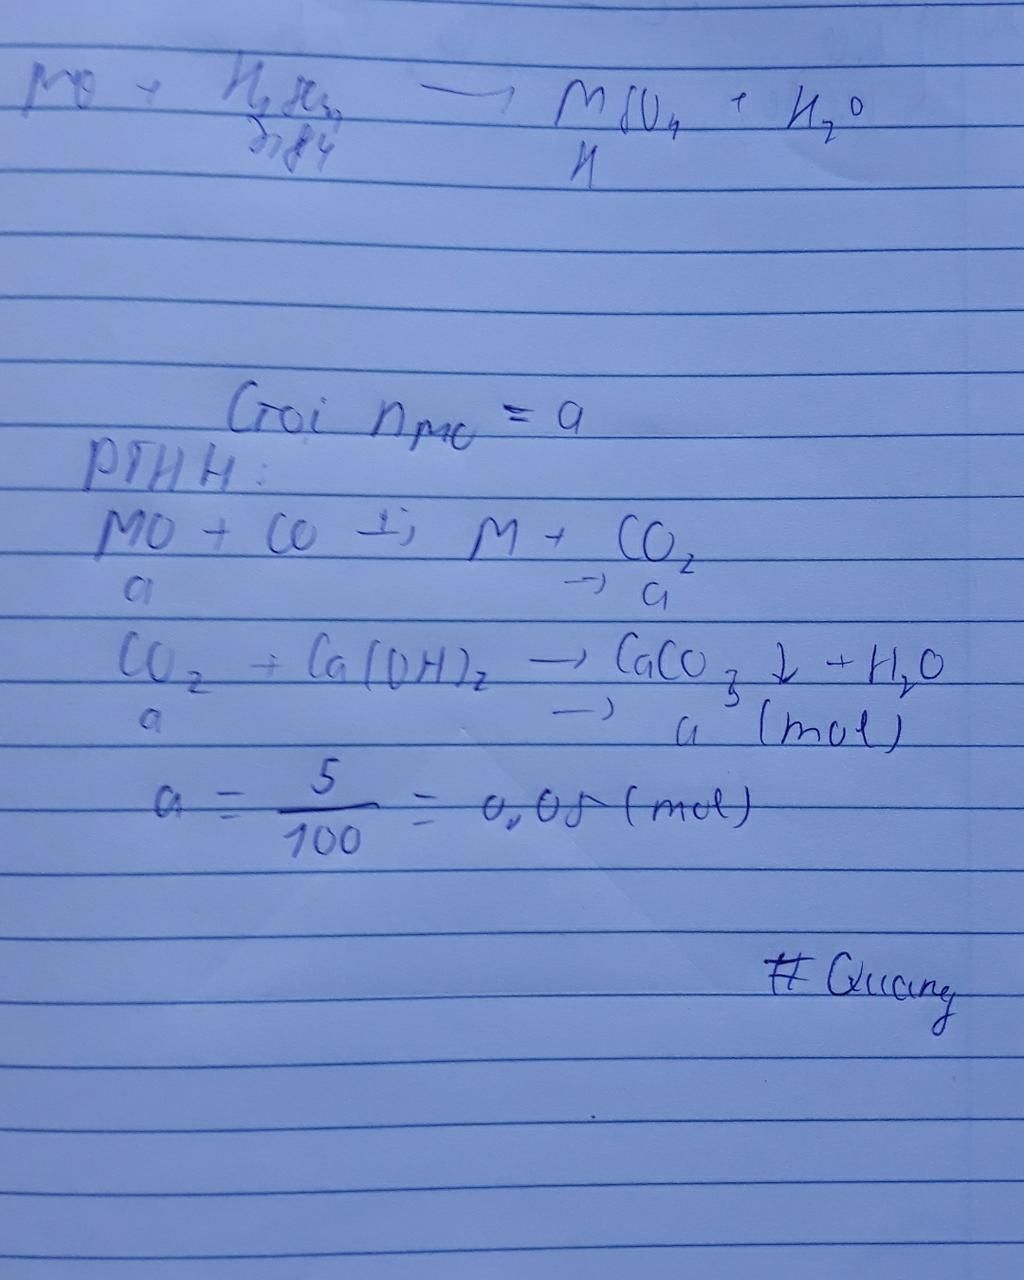 MO + H₂SO₄ → MSO₄ + H₂O
H
Gọi n MO = a
PTHH:
MO + CO → M + CO₂
a → a
CO₂ + Ca(OH)₂ → CaCO₃ ↓ + H₂O
a → a (mol)
a = 5/100 = 0,05 (mol)
# Quang